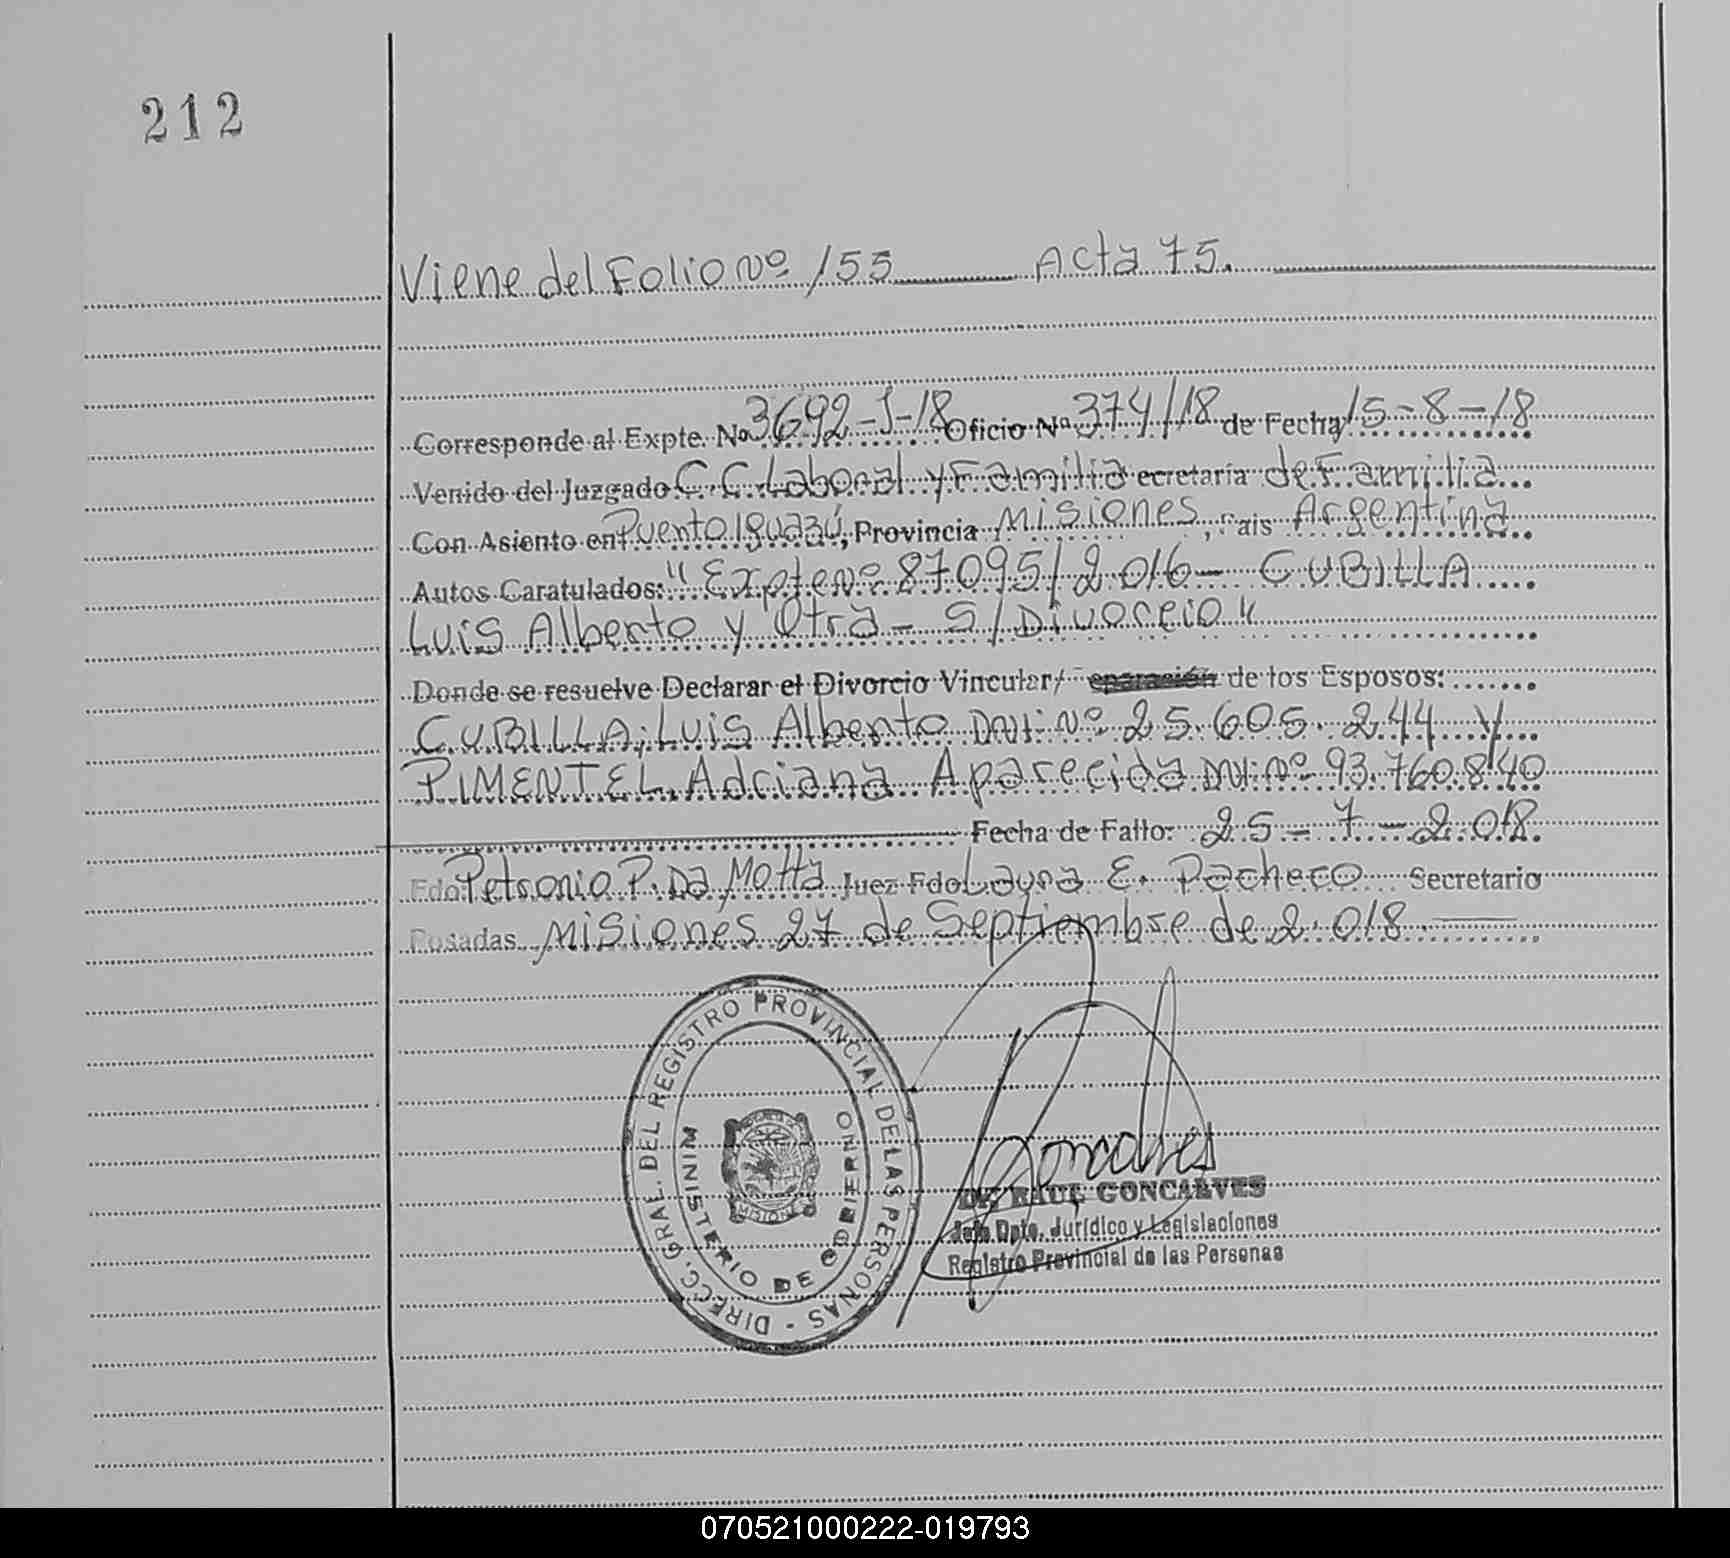 212
Viene del Folio Nº 155 Acta 75.
Corresponde al Expte. Nº 3692-J-18 Oficio Nº 374/18 de Fecha 15-8-18
Venido del Juzgado C. C. Laboral y Familia ecretaría de Familia
Con Asiento en Puerto Iguazú, Provincia Misiones, Pais Argentina
Autos Caratulados: "Expte Nº 87095/2016- CUBILLA
Luis Alberto y Otra - S/Divorcio"
Donde se resuelve Declarar el Divorcio Vincular/ eparación de los Esposos:
CUBILLA, Luis Alberto DNI. Nº 25.605.244 y
PIMENTEL, Adriana Aparecida DNI. Nº 93.760.840
Fecha de Fallo: 25-7-2018.
Fdo. Petronio P. Da Motta Juez Fdo Laura E. Pacheco Secretario
Posadas, Misiones 27 de Septiembre de 2018
DIRECC. GRAL. DEL REGISTRO PROVINCIAL DE LAS PERSONAS -
MINISTERIO DE GOBIERNO
MISIONES
Goncalves
Dr. RAUL GONCALVES
Jefe Dpto. Jurídico y Legislaciones
Registro Provincial de las Personas
070521000222-019793